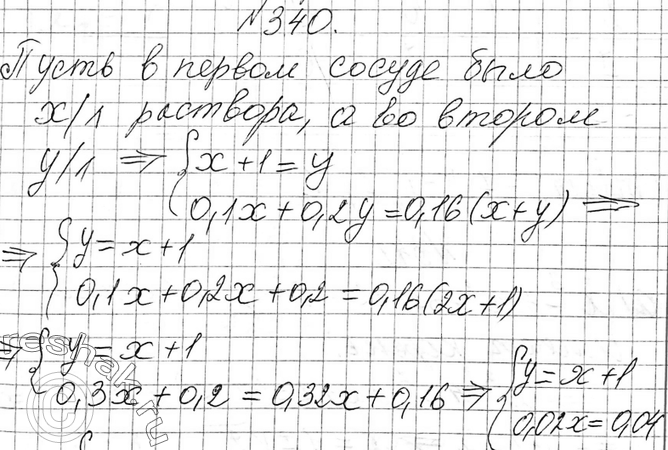 №340.
Пусть в первом сосуде было
x/л раствора, а во втором
y/л ⇒ { x + 1 = y
0,1x + 0,2y = 0,16(x + y) ⇒
⇒ { y = x + 1
0,1x + 0,2x + 0,2 = 0,16(2x + 1)
⇒ { y = x + 1
0,3x + 0,2 = 0,32x + 0,16 ⇒ { y = x + 1
0,02x = 0,04
reshak.ru